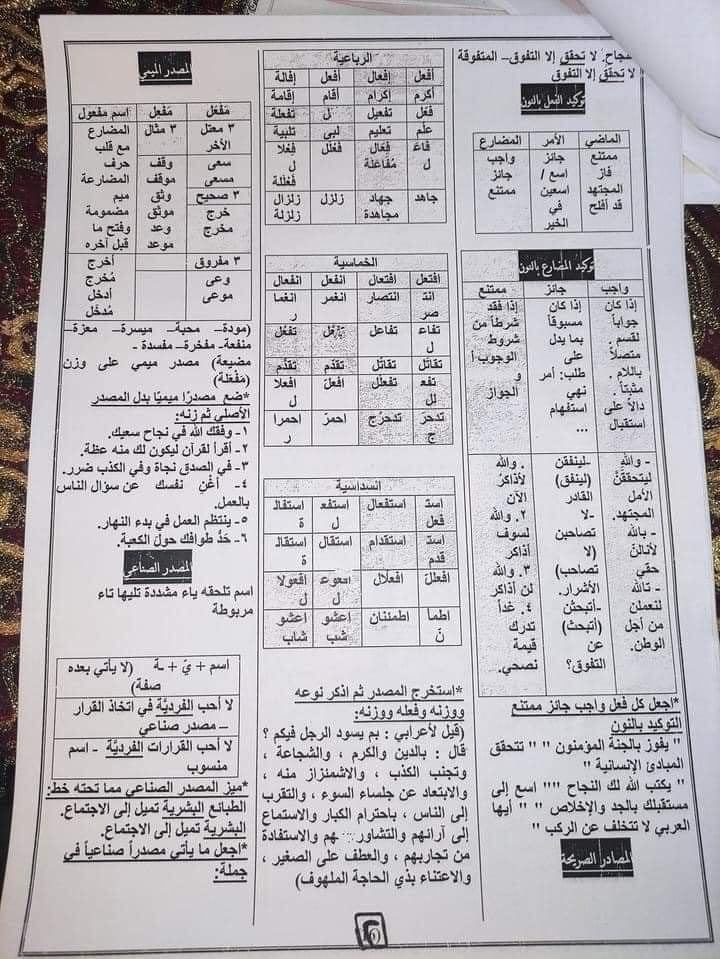 النجاح. لا تحقق إلا التفوق– المتفوقة
لا تحقق إلا التفوق
توكيد الفعل بالنون
الماضي الأمر المضارع
ممتنع جائز واجب
فاز اسع / جائز
المجتهد اسعين ممتنع
قد أفلح في
الخير
توكيد المضارع بالنون
واجب جائز ممتنع
إذا كان إذا كان إذا فقد
جواباً مسبوقاً شرطاً من
لقسم . بما يدل شروط
متصلاً على الوجوب أ
باللام . طلب: أمر و
مثبتاً . نهي الجواز
دالاً على استفهام
استقبال ...
- والله -لينفقن . والله
ليتحققنّ (لينفق) لأذاكرُ
الأمل القادر الآن
المجتهد. -لا ٢. والله
- بالله تصاحبن لسوف
لأنالنّ (لا أذاكر
حقي تصاحب) ٣. والله
- تالله الأشرار. لن أذاكر
لنعملن -أتبحثن ٤. غداً
من أجل (أتبحث) تدرك
الوطن. عن قيمة
التفوق؟ نصحي.
*اجعل كل فعل واجب جائز ممتنع
التوكيد بالنون
" يفوز بالجنة المؤمنون " " تتحقق
المبادئ الإنسانية "
" يكتب الله لك النجاح " "اسع إلى
مستقبلك بالجد والإخلاص " " أيها
العربي لا تتخلف عن الركب "
المصادر الصريحة
الرباعية
أفعل إفعال أفعل إفالة
أكرم إكرام أقام إقامة
فعّل تفعيل ل تفعلة
علّم تعليم لبى تلبية
فاعَ فِعَال فَعْلَل فِعْلا
ل مُفَاعَلة ل
فَعْلَلة
جاهد جهاد زلزل زلزال
مجاهدة زلزلة
الخماسية
افتعل افتعال انفعل انفعال
انت انتصار انغمر انغما
صر ر
تفاع تفاعل تفعّل تفعُّل
ل
تقاتل تقاتُل تقدّم تقدُّم
تفع تفعلل افعلّ افعلا
لل ل
تدحر تدحرُج احمرّ احمرا
ج ر
السداسية
است استفعال استفع استفال
فعل ل ة
است استقدام استقال استقال
قدم ة
افعللّ افعلال افعوع افعوعلا
ل ل
اطمأ اطمئنان اعشو اعشو
نّ شب شاب
*استخرج المصدر ثم اذكر نوعه
ووزنه وفعله ووزنه:
(قيل لأعرابي : بم يسود الرجل فيكم ؟
قال : بالدين والكرم ، والشجاعة ،
وتجنب الكذب ، والاشمئزاز منه ،
والابتعاد عن جلساء السوء ، والتقرب
إلى الناس ، باحترام الكبار والاستماع
إلى آرائهم والتشاور هم والاستفادة
من تجاربهم ، والعطف على الصغير ،
والاعتناء بذي الحاجة الملهوف)
المصدر الميمي
مَفْعَل مَفْعِل اسم مفعول
٣ معتل ٣ مثال المضارع
الآخر مع قلب
سعى وقف حرف
مسعى موقف المضارعة
٣ صحيح وثق ميم
خرج موثق مضمومة
مخرج وعد وفتح ما
موعد قبل آخره
٣ مفروق أخرج
وعى مُخرج
موعى أدخل
مُدخَل
(مودة– محبة– ميسرة– معزة–
منفعة– مفخرة– مفسدة -
مضيعة) مصدر ميمي على وزن
(مَفْعَلة)
*ضع مصدرًا ميميًا بدل المصدر
الأصلي ثم زنه:
١- وفقك الله في نجاح سعيك.
٢- أقرأ لقرآن ليكون لك منه عظة.
٣- في الصدق نجاة وفي الكذب ضرر.
٤- أغْنِ نفسك عن سؤال الناس
بالعمل.
٥- ينتظم العمل في بدء النهار.
٦- حَدُّ طوافك حولَ الكعبة.
المصدر الصناعي
اسم تلحقه ياء مشددة تليها تاء
مربوطة
اسم + يّ + ـة (لا يأتي بعده
صفة)
لا أحب الفرديّة في اتخاذ القرار
– مصدر صناعي
لا أحب القرارات الفرديّة - اسم
منسوب
*ميز المصدر الصناعي مما تحته خط:
الطبائع البشرية تميل إلى الاجتماع.
البشرية تميل إلى الاجتماع.
*اجعل ما يأتي مصدراً صناعياً في
جملة: